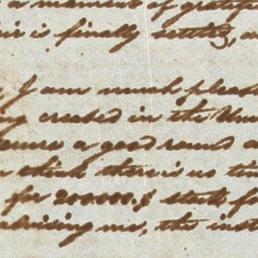 a moment of gratific
is finally settled, a
I am much pleas
created in the Un
a good round
think there is no tim
for 200.000.$ stock f
vising me, the inst